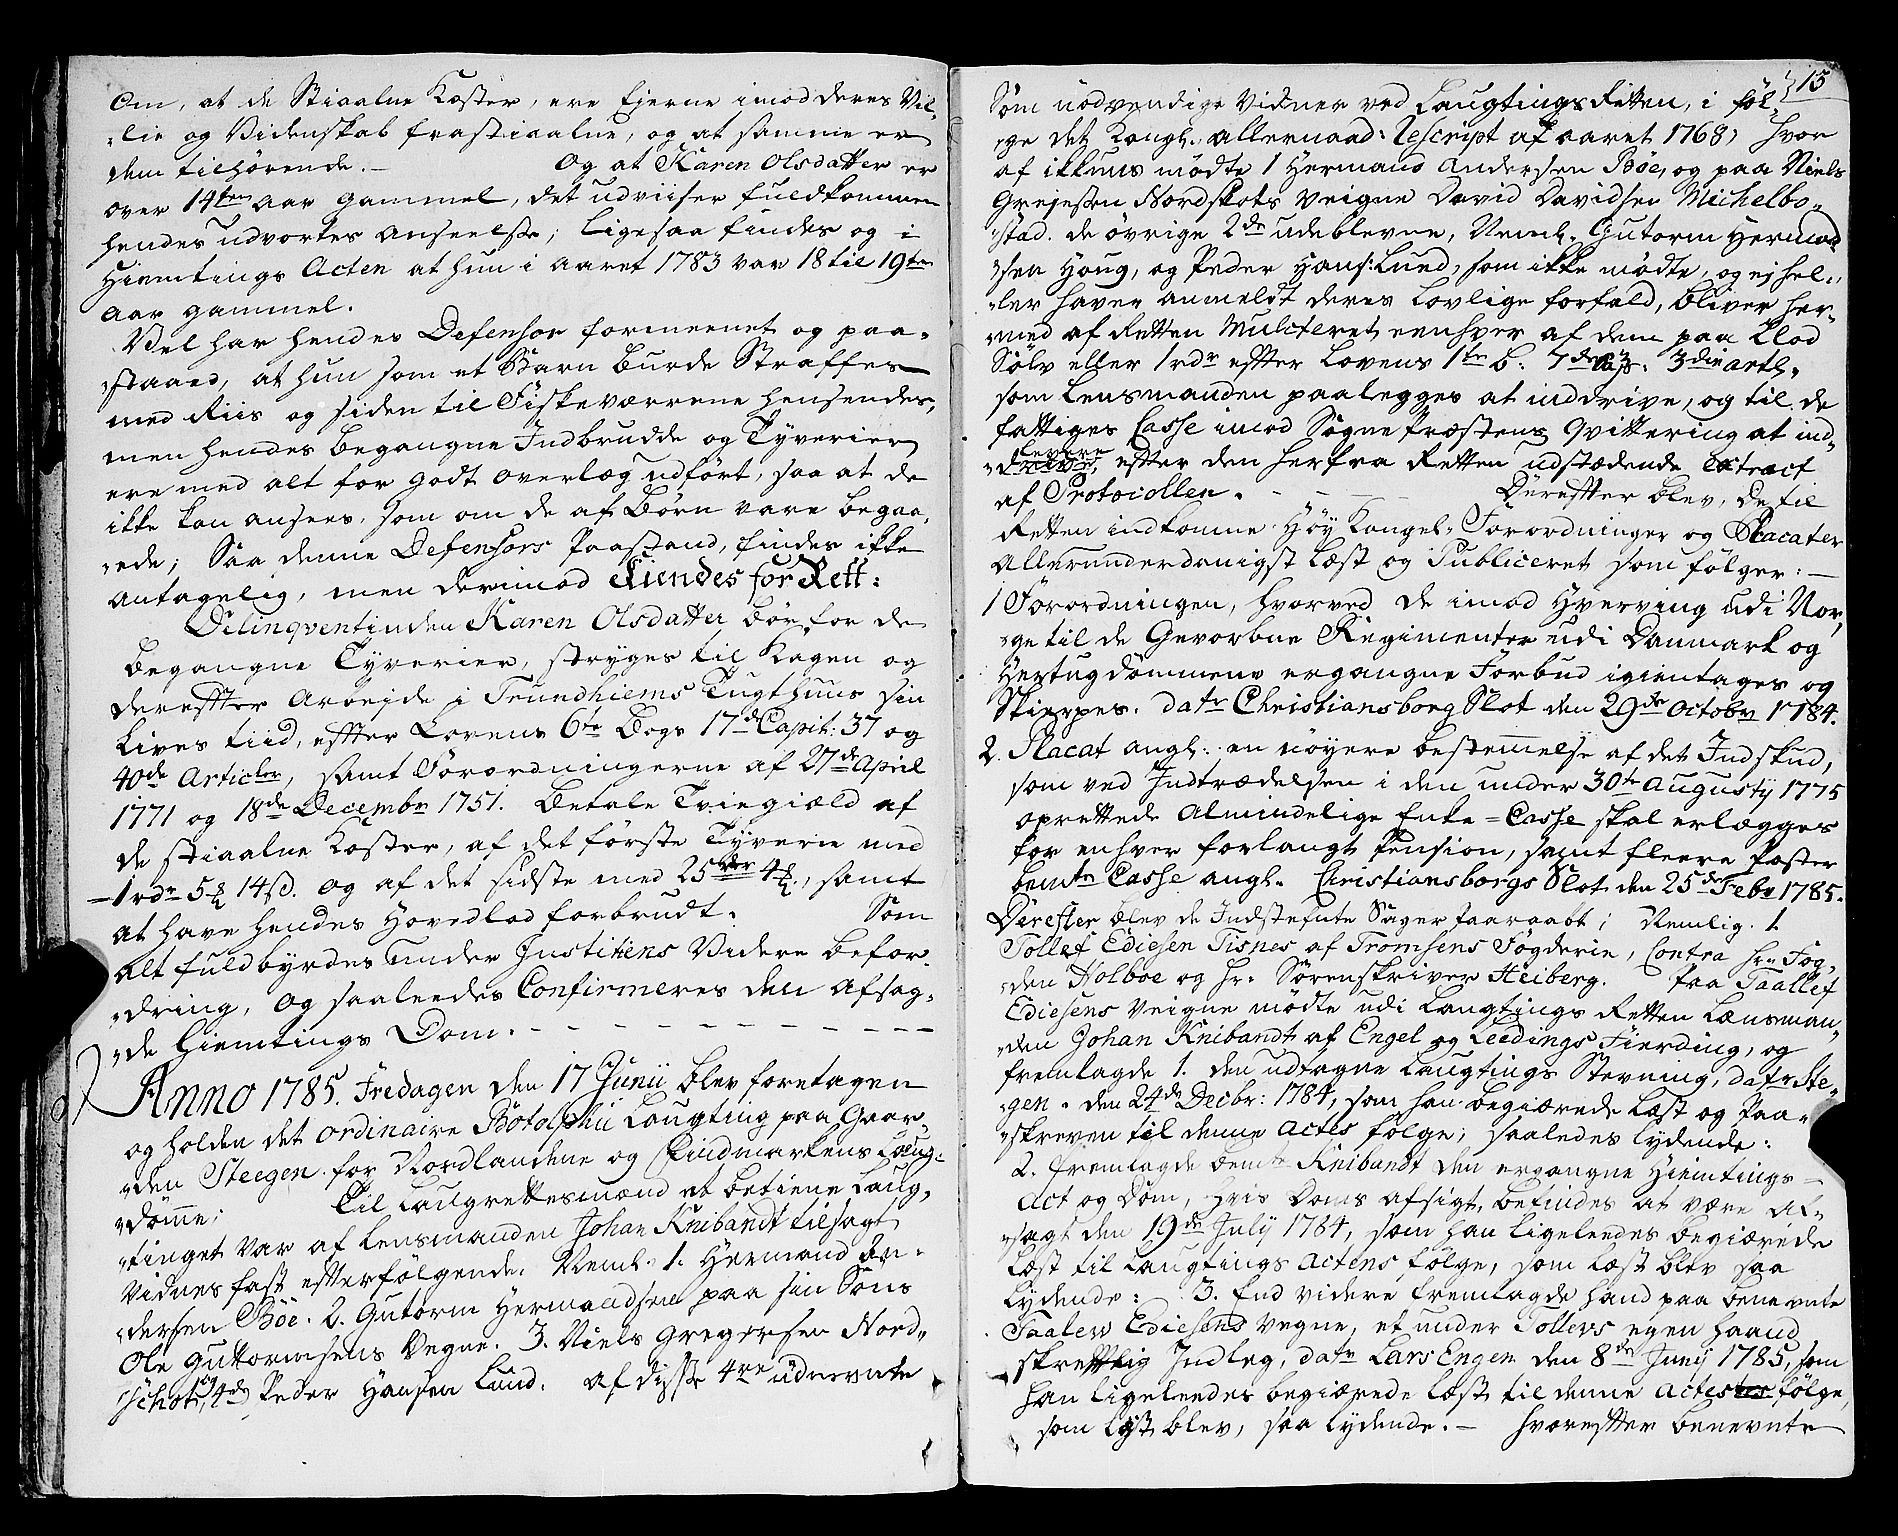 Om, at de Stiaalne Koster, ere Eierne imod deres Vil-
lie og Videnskab frastiaalne, og at samme er
dem tilhørende. — Og at Karen Olsdatter er
over 14ten aar gammel, det udviiser fuldkommen
hendes udvortes anseelse; ligesaa findes og i
Hiemtings Acten at hun i aaret 1783 var 18 til 19ten
aar gammel.
Vel har hendes Defensor formeenet og paa-
staaed, at hun som et Barn burde Straffes
med Riis og siden til Fiskeværrene hensendes,
men hendes begangne Indbrudde og Tyverier
ere med alt for godt overlæg udført, saa at de
ikke kan ansees, som om de af Børn vare begaa-
ede; Saa denne Defensors Paastand, findes ikke
antagelig, men derimod Kiendes for Rett:
Delinqventinden Karen Olsdatter bør for de
begangne Tyverier, stryges til Kagen og
derefter arbejde i Trundhiems Tugthuus sin
Lives tiid, efter Lovens 6te Bogs 17de Capit: 37 og
40de Articler, samt Forordningerne af 27de April
1771 og 18de Decembr 1751. Betale Tviegiæld af
de stiaalne Koster, af det første Tyverie med
— 1 rdr 5 ꝶ 14 ß. og af det sidste med 25 rdr 4 ꝶ., samt
at have hendes Hovedlod forbrudt. Som
alt fuldbyrdes under Justitiens Videre befor-
dring, og saaleedes Confirmeres den afsag-
de Hiemtings Dom. — — — — — — — —
Anno 1785. Fredagen den 17 Junii blev foretagen
og holden det ordinaire Botolphii Laugting paa Gaar-
den Steegen for Nordlandene og Findmarkens Laug-
dømme; Til Laugrettesmænd at betiene Laug-
tinget var af Lensmanden Johan Knibandt tilsagt
Vidnes fast efterfølgende. Neml. 1. Hermand An-
dersen Bøe. 2. Gutorm Hermandsen paa sin Søns
Ole Guttormsens Vegne. 3. Niels Gregersen Nord-
schot, og 4de Peder Hansen Lund. af disse 4re udnevnte
15
Som nødvendige Vidner ved Laugtings Retten, i føl-
ge det Kongl. allernaad: Rescript af aaret 1768, hvor
af ikkuns mødte 1 Hermand Andersen Bøe, og paa Niels
Grejessen Nordskots Veigne David Davidsen Michelbo-
stad. de øvrige 2de udeblevne, Neml. Gutorm Hermand-
sen Houg, og Peder Hans: Lund, som ikke mødte, og ej hel-
ler haver anmeldt deres Lovlige forfald, bliver her-
med af Retten Mulcteret eenhver af dem paa 2 Lod
Sølv eller 1 rdr efter Lovens 1te b: 7de Cap: 3die artl.
som Lensmanden paalegges at inddrive, og til de
fattiges Casse imod Sogne Præstens Qvittering at ind-
levere
drive, efter den herfra Retten udstædende Extract
af Protocollen. — — — Derefter blev, de til
Retten indkomne Høy Kongel. Forordninger og Placater
Allerunderdanigst Læst og Publiceret som følger: —
1 Forordningen, hvorved de imod Hverving udi Nor-
ge til de Gevorbne Regimenter udi Danmark og
Hertugdømmene ergangne Forbud igientages og
Skierpes. datr Christiansborg Slot den 29de Octobr 1784.
2. Placat angl: en nøyere bestemmelse af det Indskud,
som ved Indtrædelsen i den under 30te Augusty 1775
oprettede Almindelige Enke-Casse skal erlægges
for enhver forlangt Pension, samt fleere Poster
bemte Casse angl. Christiansborgs Slot den 25de Febr 1785.
Derefter blev de Indstefnte Sager Paaraabt; Nemlig. 1
Tollef Ediesen Tisnes af Tromsens Fogderie, Contra Hrr Fog-
den Holboe og Hr. Sorenskriver Heiberg. Paa Taallef
Ediesens Veigne mødte udi Laugtings Retten Lænsman-
den Johan Knibandt af Engel og Leedings Fierding, og
fremlagde 1. den udtagne Laugtings Stevning, datr Ste-
gen. den 24de Decbr: 1784, som han begiærede Læst og Paa-
skreven til denne Actes følge; saaledes lydende:
2. fremlagde bemte Knibandt den ergangne Hiemtings-
Act og Dom, hvis Doms afsigt, befindes at være af-
sagt den 19de July 1784, som han ligeleedes begiærede
Læst til Laugtings Actens følge, som læst blev saa
Lydende: 3. End videre fremlagde hand paa benevnte
Taalew Ediesens Vegne, et under Tollevs egen Haand
skrevtlig Indleg, datr Lars Engen den 8de Junij 1785, som
han ligeleedes begiærede læst til denne Actes følge,
som læst blev, saa lydende. — hvorefter benevnte